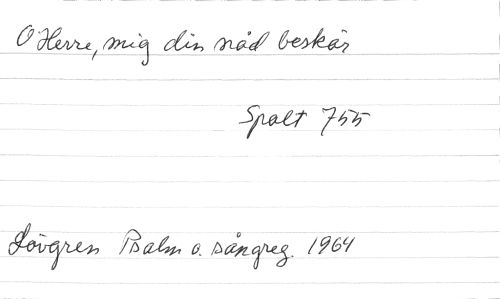 O Herre, mig din nåd beskär
Spalt 755
Lövgren Psalm o. sångreg. 1964